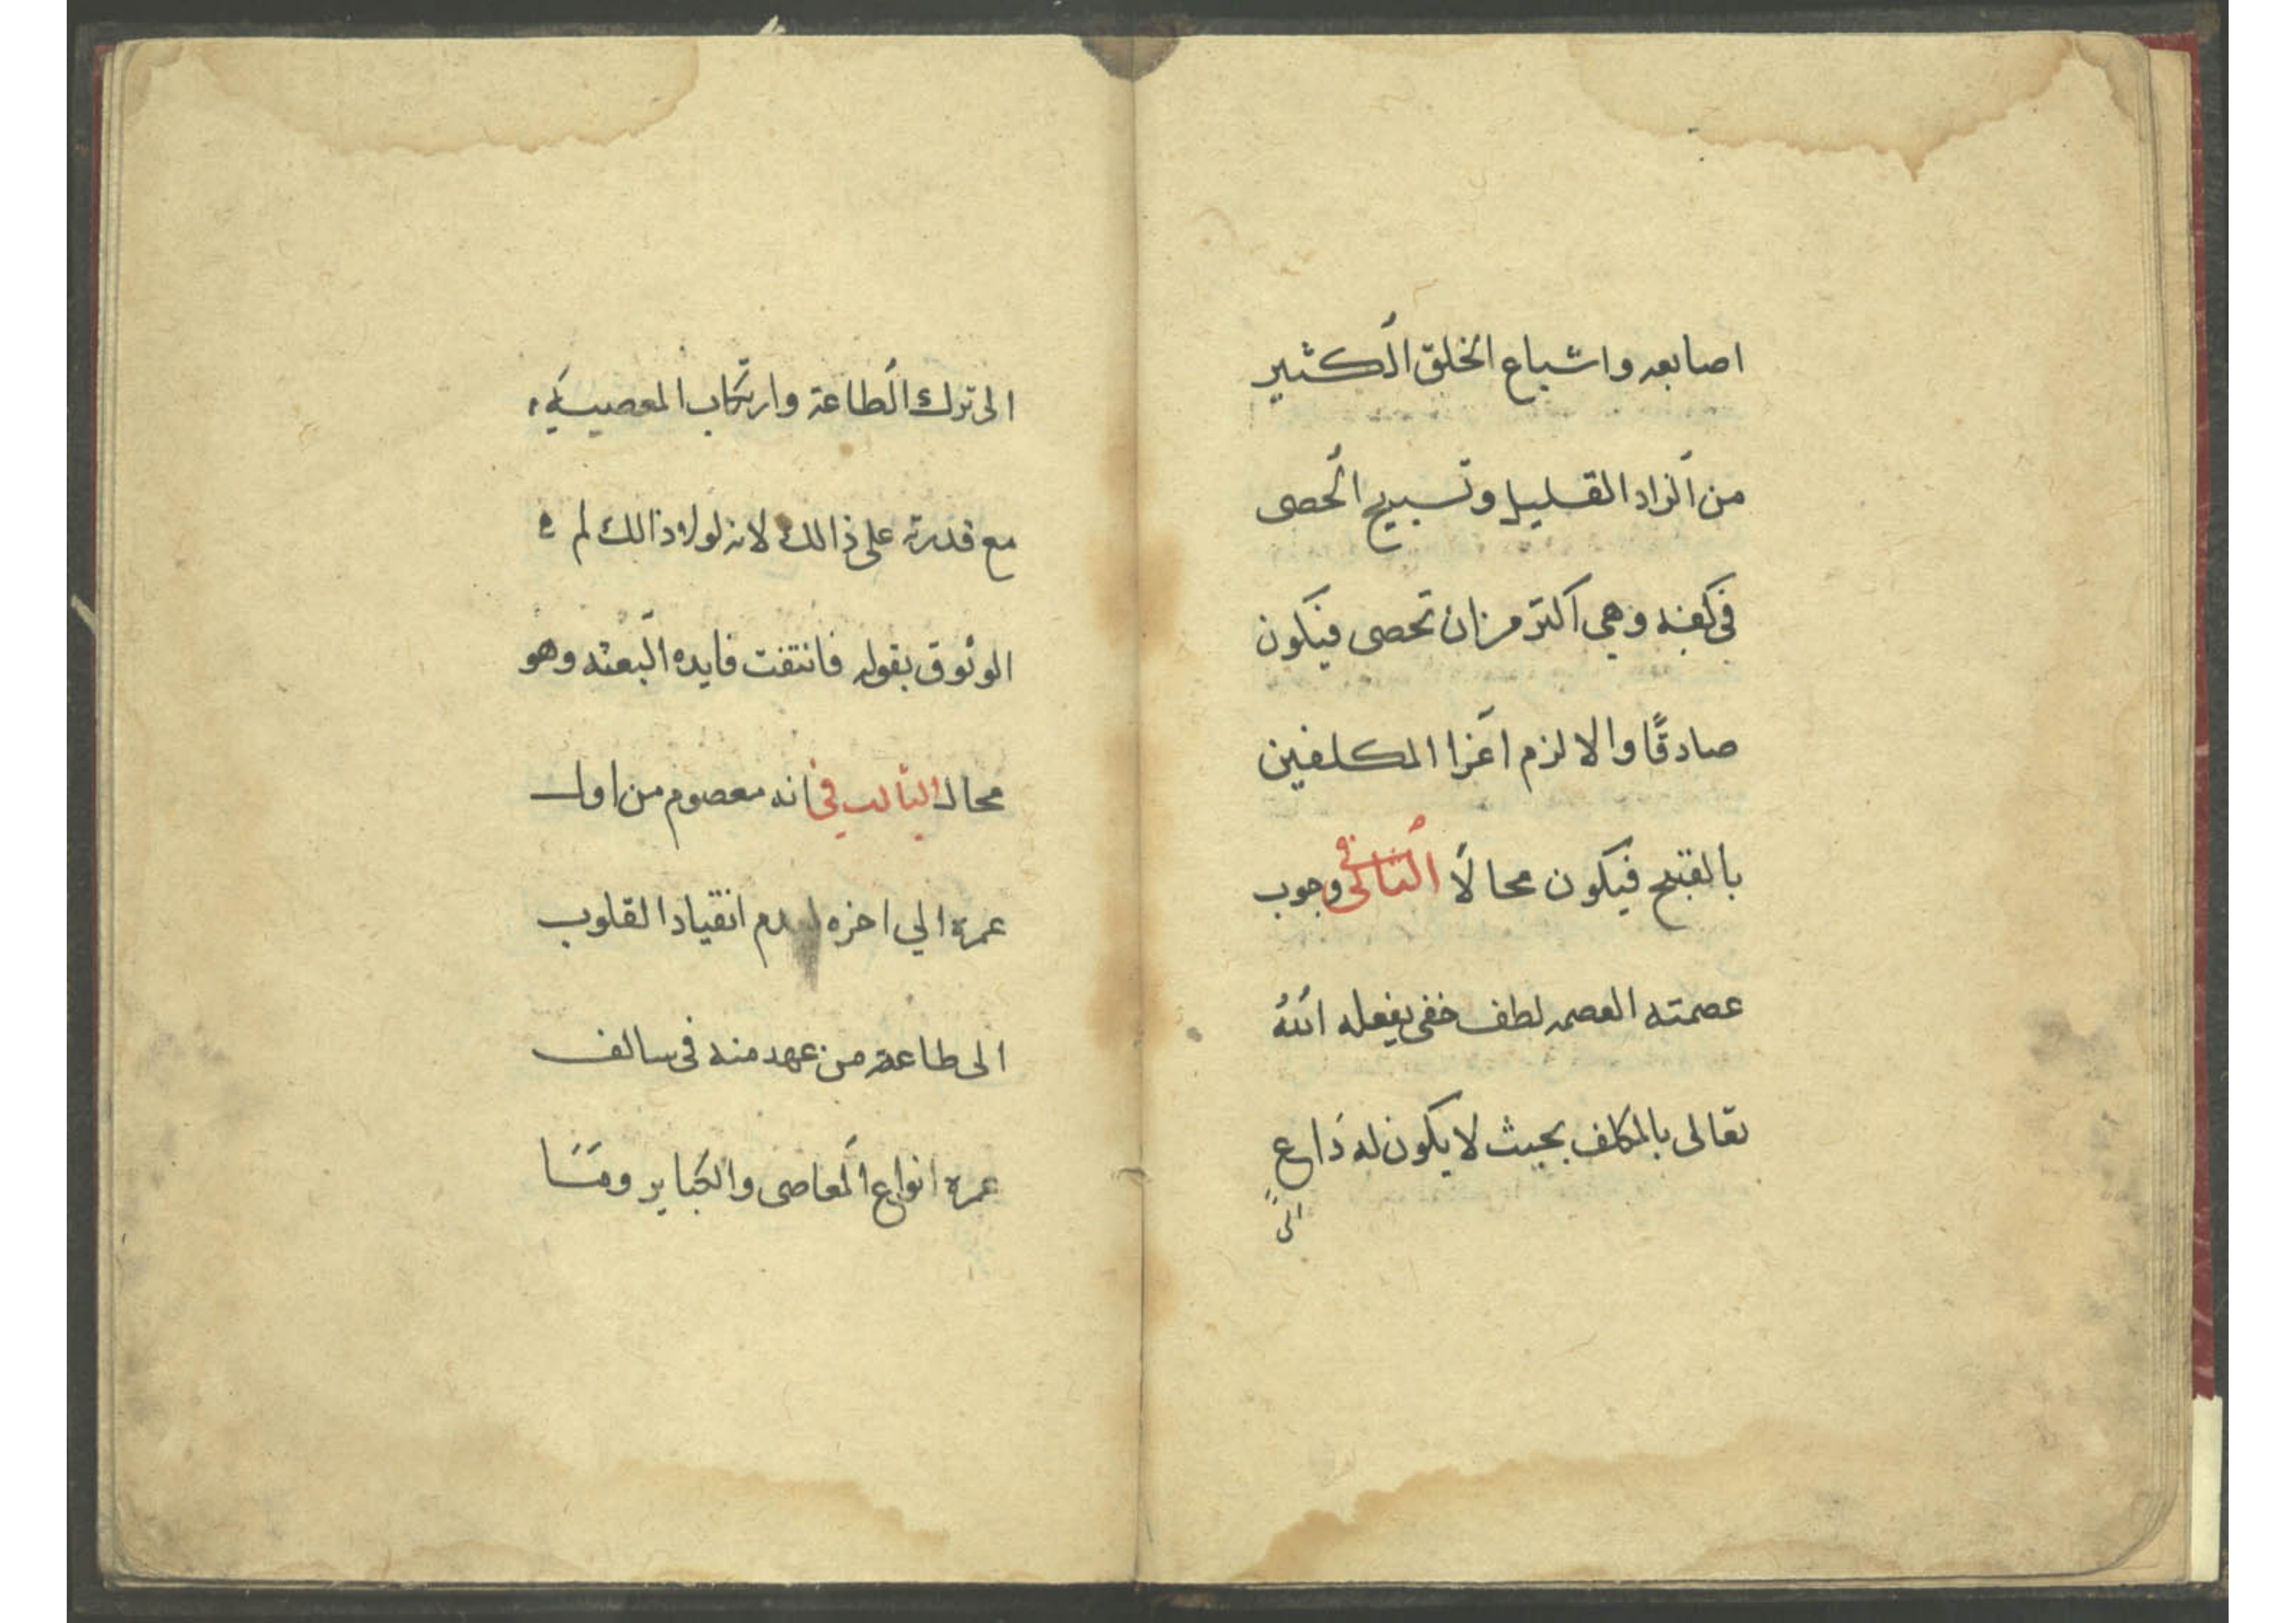 اصابعه واشباع الخلق الكثير
من الزاد القليل وتسبيح الحصى
في كفه وهي اكثر من ان تحصى فيكون
صادقًا والا لزم اغرا المكلفين
بالقبيح فيكون محالًا الثاني في وجوب
عصمته العصمه لطف خفي يفعله الله
تعالى بالمكلف بحيث لا يكون له داع
الى
الى ترك الطاعة وارتكاب المعصية
مع قدرته على ذالك لانه لولا ذالك لم
الوثوق بقوله فانتفت فايده البعثه وهو
محال الثالث في انه معصوم من اول
عمره الي اخره لعدم انقياد القلوب
الى طاعة من عهد منه في سالف
عمره انواع المعاصى والكباير وما